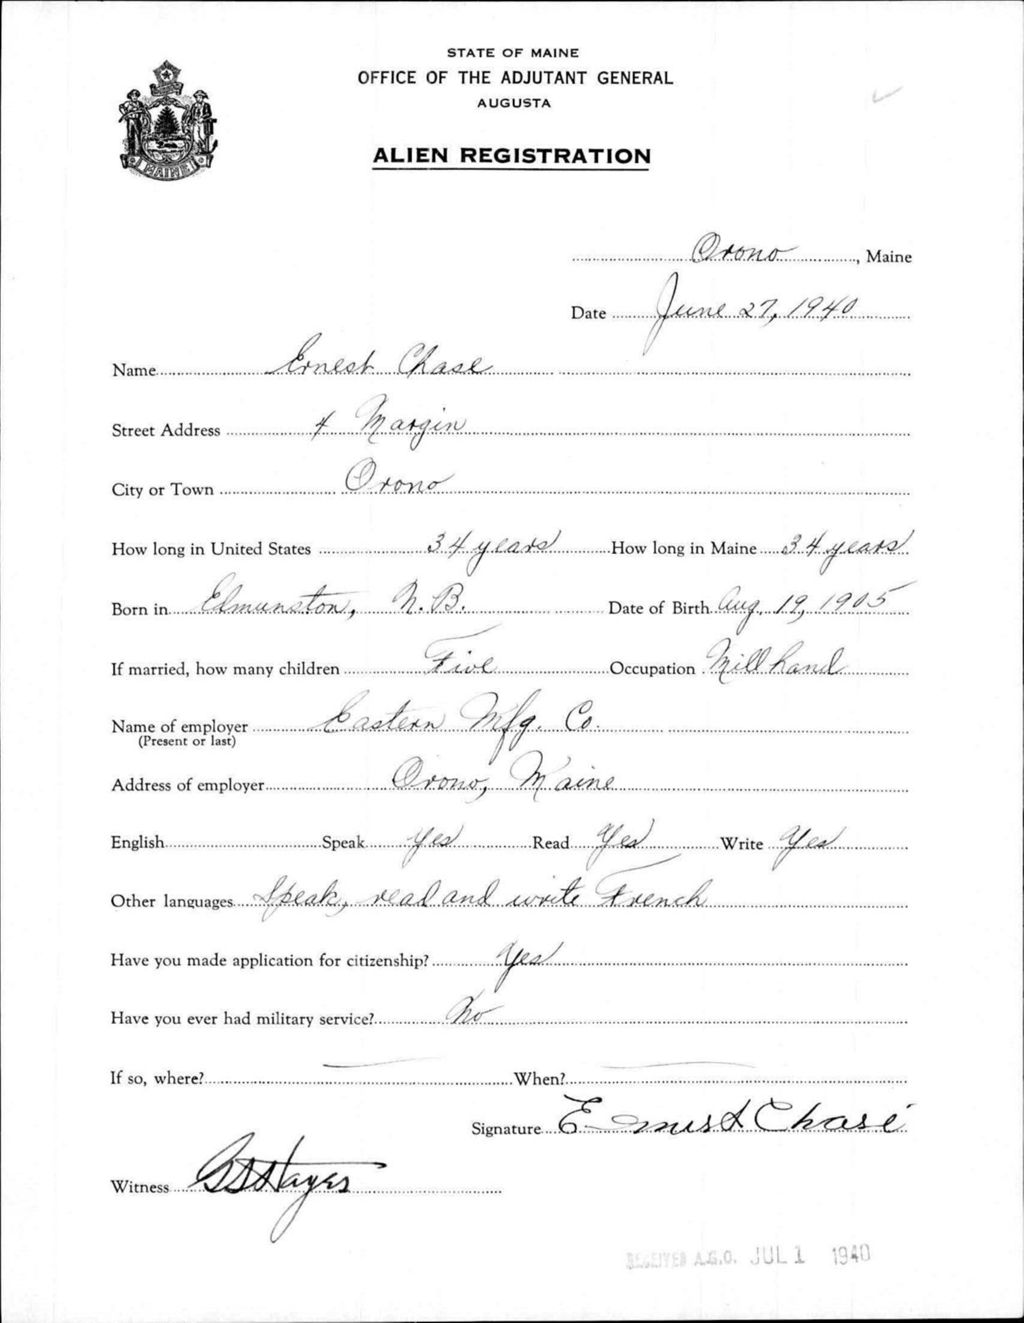 STATE OF MAINE
OFFICE OF THE ADJUTANT GENERAL
AUGUSTA
ALIEN REGISTRATION
MAINE
Orono, Maine
Date June 27, 1940
Name Ernest Chase
Street Address 4 Margin
City or Town Orono
How long in United States 34 years How long in Maine 34 years
Born in Edmunston, N.B. Date of Birth Aug. 19, 1905
If married, how many children Five Occupation Mill hand
Name of employer Eastern Mfg. Co.
(Present or last)
Address of employer Orono, Maine
English Speak Yes Read Yes Write Yes
Other languages Speak, read and write French
Have you made application for citizenship? Yes
Have you ever had military service? No
If so, where? When?
Signature Ernest Chase
Witness Hayes
RECEIVED A.G.O. JUL 1 1940